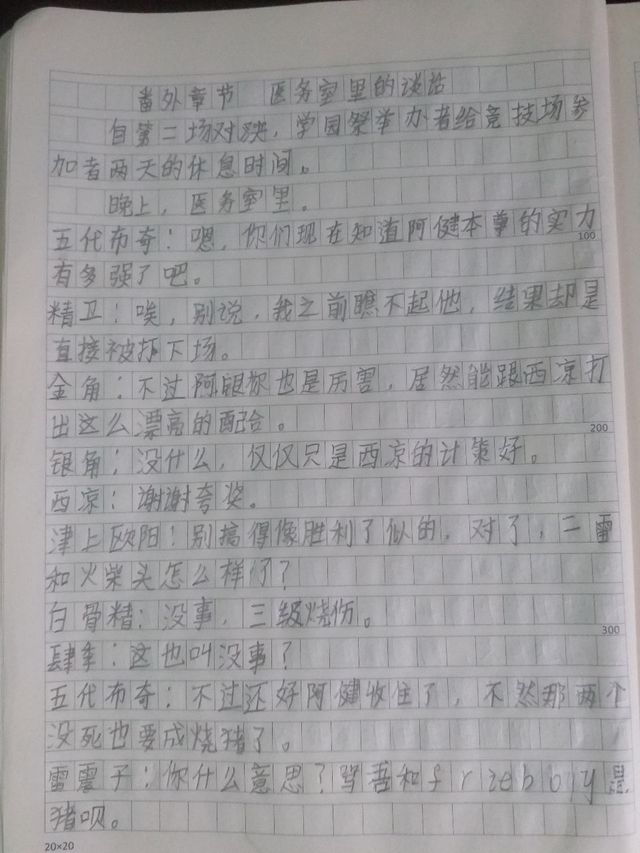 番外章节 医务室里的谈话
自第二场对决，学园祭举办者给竞技场参
加者两天的休息时间。
晚上，医务室里。
五代布奇：嗯，你们现在知道阿健本尊的实力
100
有多强了吧。
精卫：唉，别说，我之前瞧不起他，结果却是
直接被打下场。
金角：不过阿银你也是厉害，居然能跟西凉打
出这么漂亮的配合。
200
银角：没什么，仅仅只是西凉的计策好。
西凉：谢谢夸奖。
津上欧阳：别搞得像胜利了似的，对了，二雷
和火柴头怎么样了？
白骨精：没事，三级烧伤。
300
肆季：这也叫没事？
五代布奇：不过还好阿健收住了，不然那两个
没死也要成烧猪了。
雷震子：你什么意思？骂吾和fireboy是
猪呗。
20×20